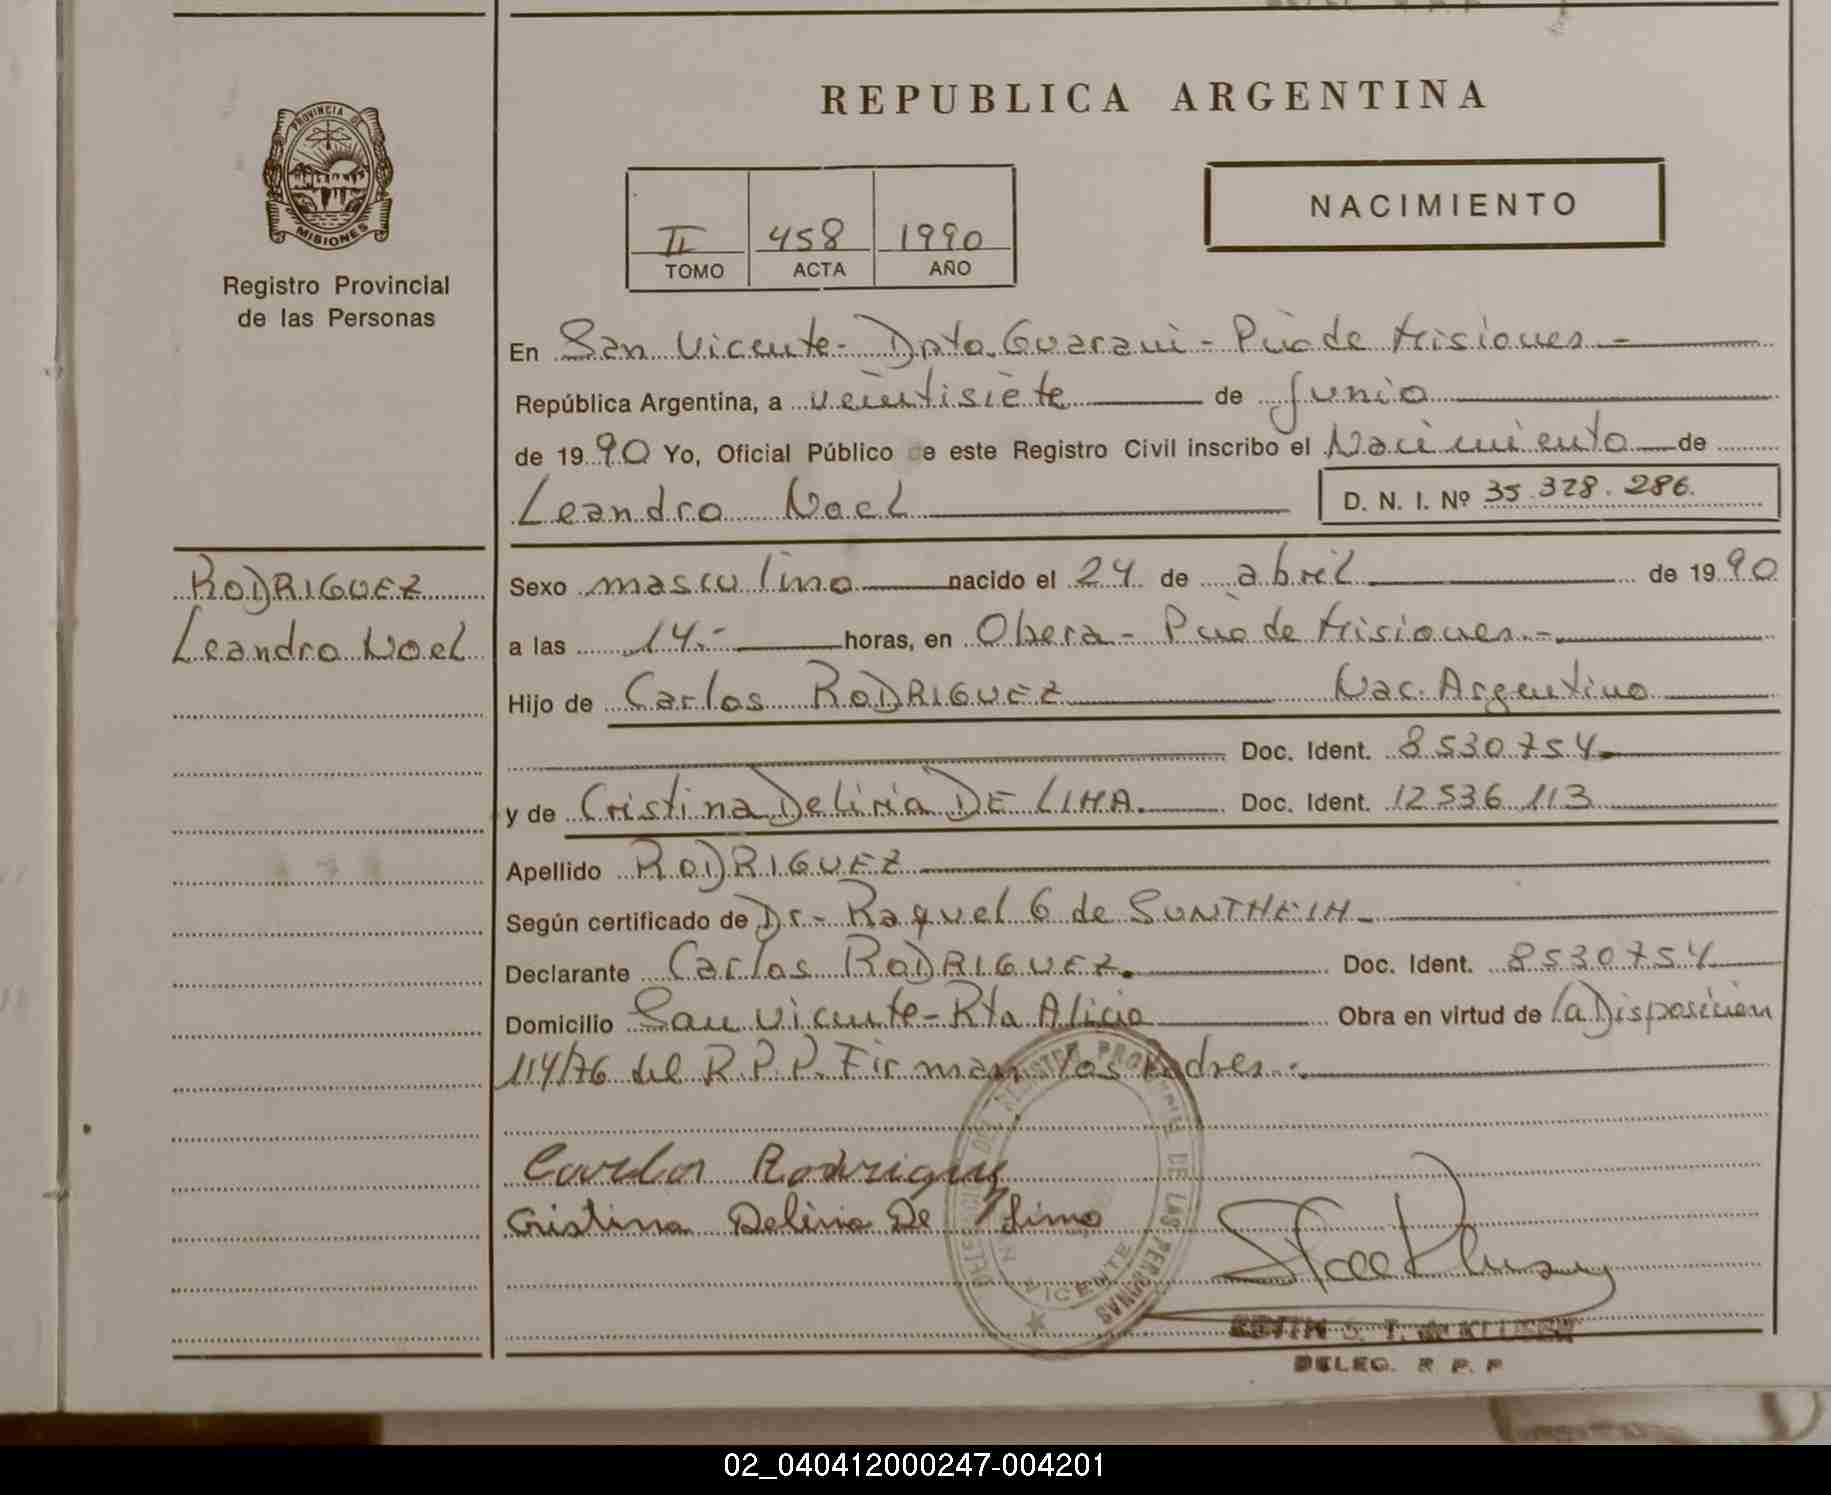 REPUBLICA ARGENTINA
PROVINCIA DE
MISIONES
Registro Provincial
de las Personas
II 458 1990
TOMO ACTA AÑO
NACIMIENTO
En San Vicente - Dpto. Guarani - Pcia de Misiones -
República Argentina, a veintisiete de Junio
de 1990 Yo, Oficial Público de este Registro Civil inscribo el Nacimiento de
Leandro Noel D. N. I. Nº 35.328.286.
RODRIGUEZ
Leandro Noel
Sexo masculino nacido el 24 de abril de 1990
a las 14.- horas, en Obera - Pcia de Misiones.-
Hijo de Carlos RODRIGUEZ Nac. Argentino
Doc. Ident. 8530754
y de Cristina Deliria DE LIMA. Doc. Ident. 12536113
Apellido RODRIGUEZ
Según certificado de Dr.- Raquel G de SUNTHEIM -
Declarante Carlos RODRIGUEZ. Doc. Ident. 8530754
Domicilio San Vicente - Rta Alicia Obra en virtud de la Disposicion
114/76 del R.P.P. Firman los Padres.-
Carlos Rodriguez
Cristina Deliria De Lima
DEL REGISTRO PROVINCIAL DE LAS PERSONAS
VICENTE
EDITH S. T. de KLUSEN
DELEG. R. P. P
02_040412000247-004201